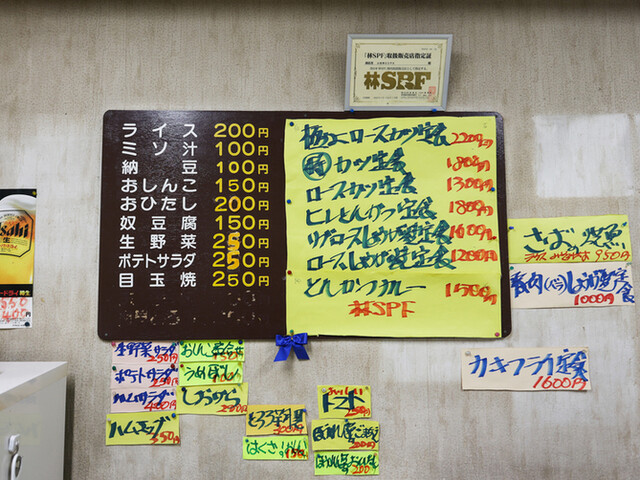 「林SPF」取扱販売店指定証
林SPF
ライス 200円
ミソ汁 100円
納豆 100円
おしんこ 150円
おひたし 200円
奴豆腐 150円
生野菜 250円
ポテトサラダ 250円
目玉焼 250円
極上ロースカツ定食 2200円
カツ定食 1800円
ロースカツ定食 1300円
ヒレとんかつ定食 1800円
リブロースしょうが焼定食 1600円
ロースしょうが焼定食 1200円
とんかつカレー 1500円
林SPF
さばの塩焼
950円
しょうが焼定食
1000円
カキフライ定食
1600円
生野菜サラダ
250円
ポテトサラダ
250円
ハムサラダ
400円
ハムエッグ
350円
おしんこ
うめぼし
しおから
200円
とろろ
200円
はくさい
150円
トマト
200円
200円
Asahi
生